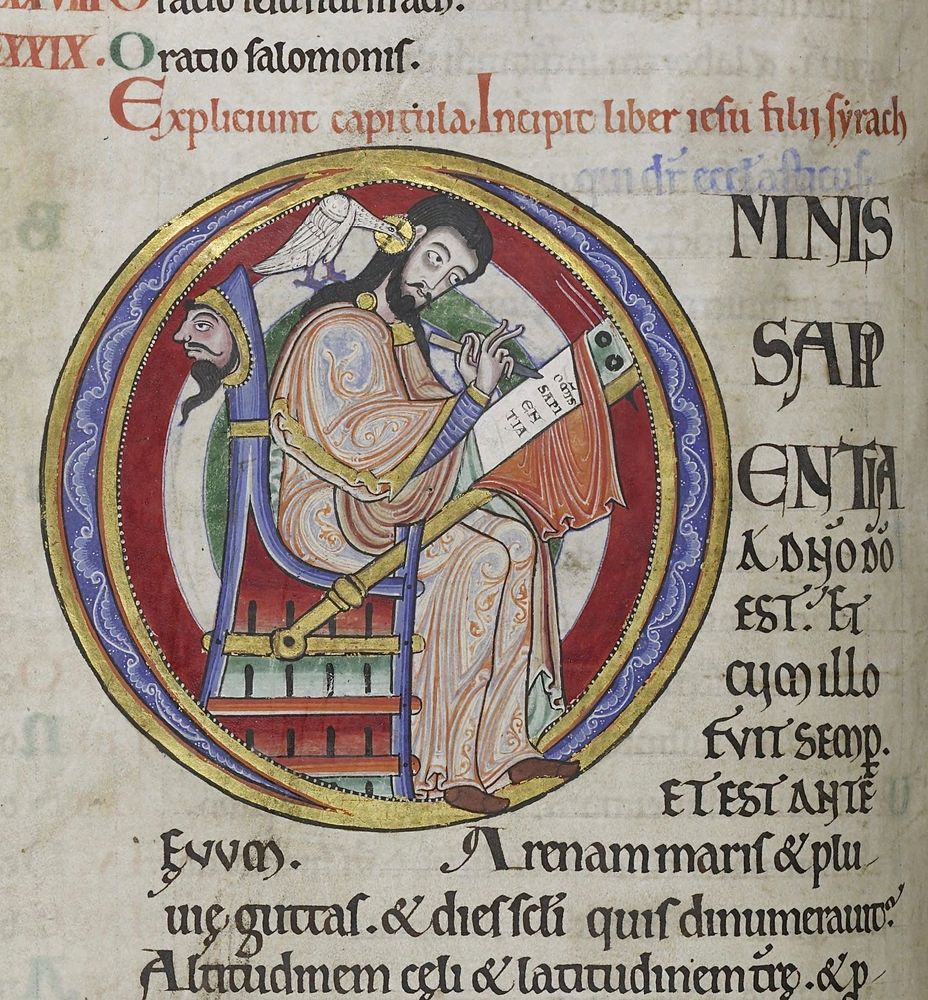 Oratio iesu filii sirach.
XXIX. Oratio salomonis.
Expliciunt capitula. Incipit liber iesu filij syrach
qui dr̄ eccl'asticus
OM̄IS
SAPI
EN
TIA
MNIS
SAPI
ENTIA
A DŃO DŌ
EST. Et
CUM ILLO
FVIT SEMP̱.
ET EST ANTE
Ęvvm. Arenam maris & plu
uię guttas. & dies sc̄li quis dinumerauit?
Altitudinem cęli & latitudinem t̄rę. & p